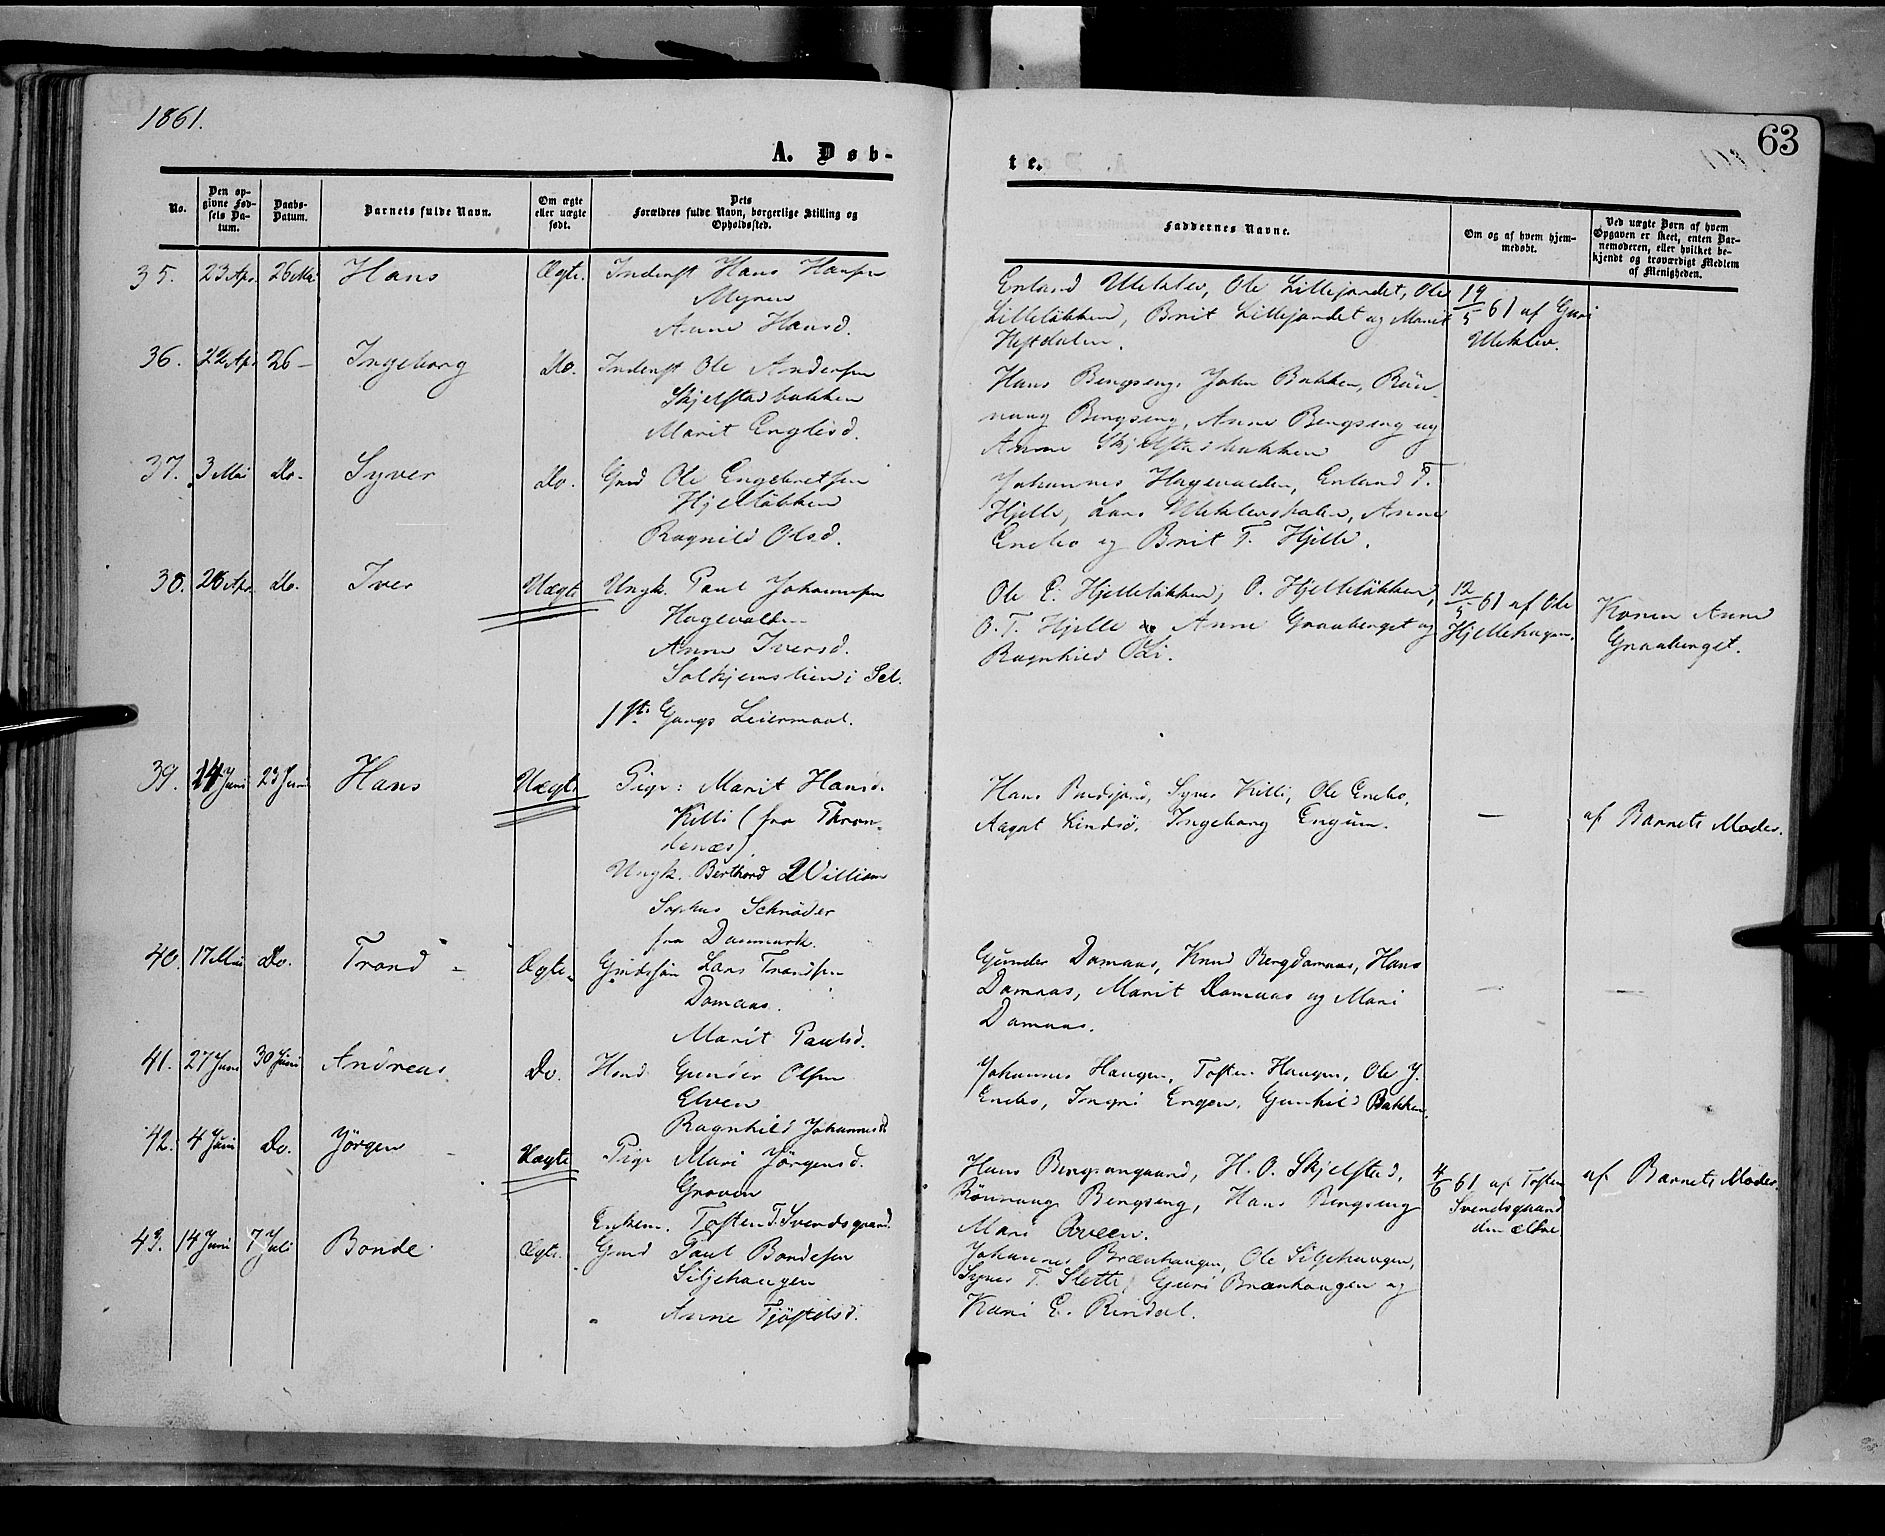 1861.
63
A. Døb-
te.
No.
Den op-
givne Fød-
sels Da-
tum.
Daabs-
Datum.
Barnets fulde Navn.
Om ægte
eller uægte
født.
Dets
Forældres fulde Navn, borgerlige Stilling og
Opholdssted.
Faddernes Navne.
Om og af hvem hjem-
medøbt.
Ved uægte Børn af hvem
Opgaven er skeet, enten Bar-
nemoderen, eller hvilket be-
kjendt og troværdigt Medlem
af Menigheden.
35. 23 Apr. 26 Mai Hans Ægte. Inderst Hans Hansen
Myren
Anne Hansd.
Erland Uleklev, Ole Lillejordet, Ole
Lilleløkken, Brit Lillejordet og Marit
Heftdalen.
19/5 61 af Guri
Uleklev.
36. 22 Apr. 26 – Ingeborg Do. Inderst Ole Andersen
Skjelstadbakken
Marit Englisd.
Hans Bengseng, John Bakken, Rön-
naug Bengseng, Anne Bengseng og
Anne Skjelstadbakken
37. 3 Mai Do. Syver Do. Grd Ole Engebretsen
Hjelleløkken
Ragnild Olsd.
Johannes Hagevolden, Erland T.
Hjelle, Lars Uleklevshalen, Anne
Enebo og Brit T. Hjelle.
38. 26 Apr. Do. Iver Uægte Ungk. Paul Johannesen
Hagevolden
Anne Iversd.
Solhjemslien i Sel.
1ste Gangs Leiermaal.
Ole E. Hjelleløkken, O. Hjelleløkken,
O. T. Hjelle Anne Graaberget og
Ragnhild Oli.
12/5 61 af Ole
Hjellehagen.
Konen Anne
Graaberget.
39. 14 Juni 23 Juni Hans Uægte Pige: Marit Hansd.
Killi (fra Thron-
denæs)
Ungk. Berthord William
Sophus Schrøder
fra Danmark.
Hans Syver Killi, Ole Enebo,
Aagot Lindsø, Ingeborg Engum.
–
af Barnets Moder.
40. 17 Mai Do. Trond Ægte. Grdssøn Lars Trondsen
Domaas.
Marit Paulsd.
Gunder Domaas, Knud Bergdomaas, Hans
Domaas, Marit Domaas og Mari
Domaas.
–
–
41. 27 Juni 30 Juni Andreas Do. Hmd. Gunder Olsen
Elven
Ragnhild Johannesd.
Johannes Haugen, Tosten Haugen, Ole J.
Enebo, Ingri Engen, Gunhild Bakken.
42. 4 Juni Do. Jörgen Uægte Pige Mari Jörgensd.
Groven
Enkem. Tosten T. Svendsgaard.
Hans Bengsangaard, H. O. Skjelstad,
Rönnaug Bengseng, Hans Bengseng
Mari Qveen.
4/6 61 af Tosten
Svendsgaard
den ældre
af Barnets Moder.
43. 14 Juni 7 Juli Bonde Ægte. Grd Paul Bondesen
Siljehaugen
Anne Tjøstelsd.
Johannes Brænhaugen, Ole Siljehaugen,
Syver T. Slette, Guri Brænhaugen og
Kari E. Rindal.